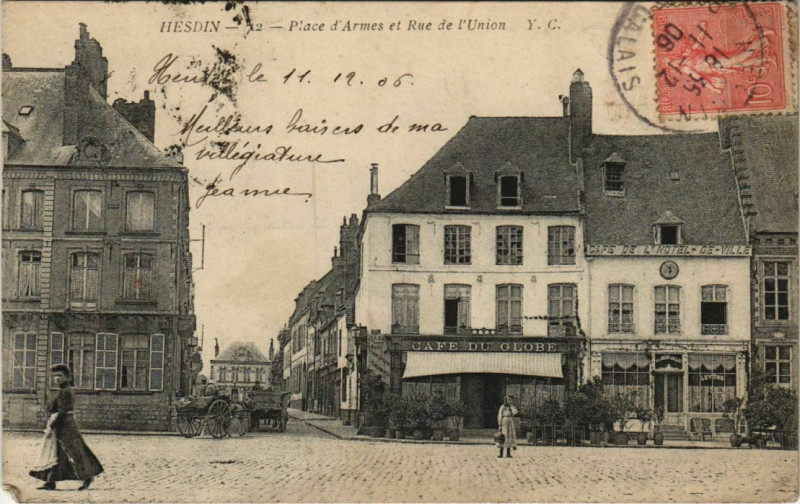 HESDIN — 12 — Place d'Armes et Rue de l'Union Y. C.
le 11. 12. 06.
Meilleurs baisers de ma
villégiature
Jeanne
CALAIS
16 55
11 -12
06
10
CAFÉ DE L'HÔTEL-DE-VILLE
CAFÉ DU GLOBE